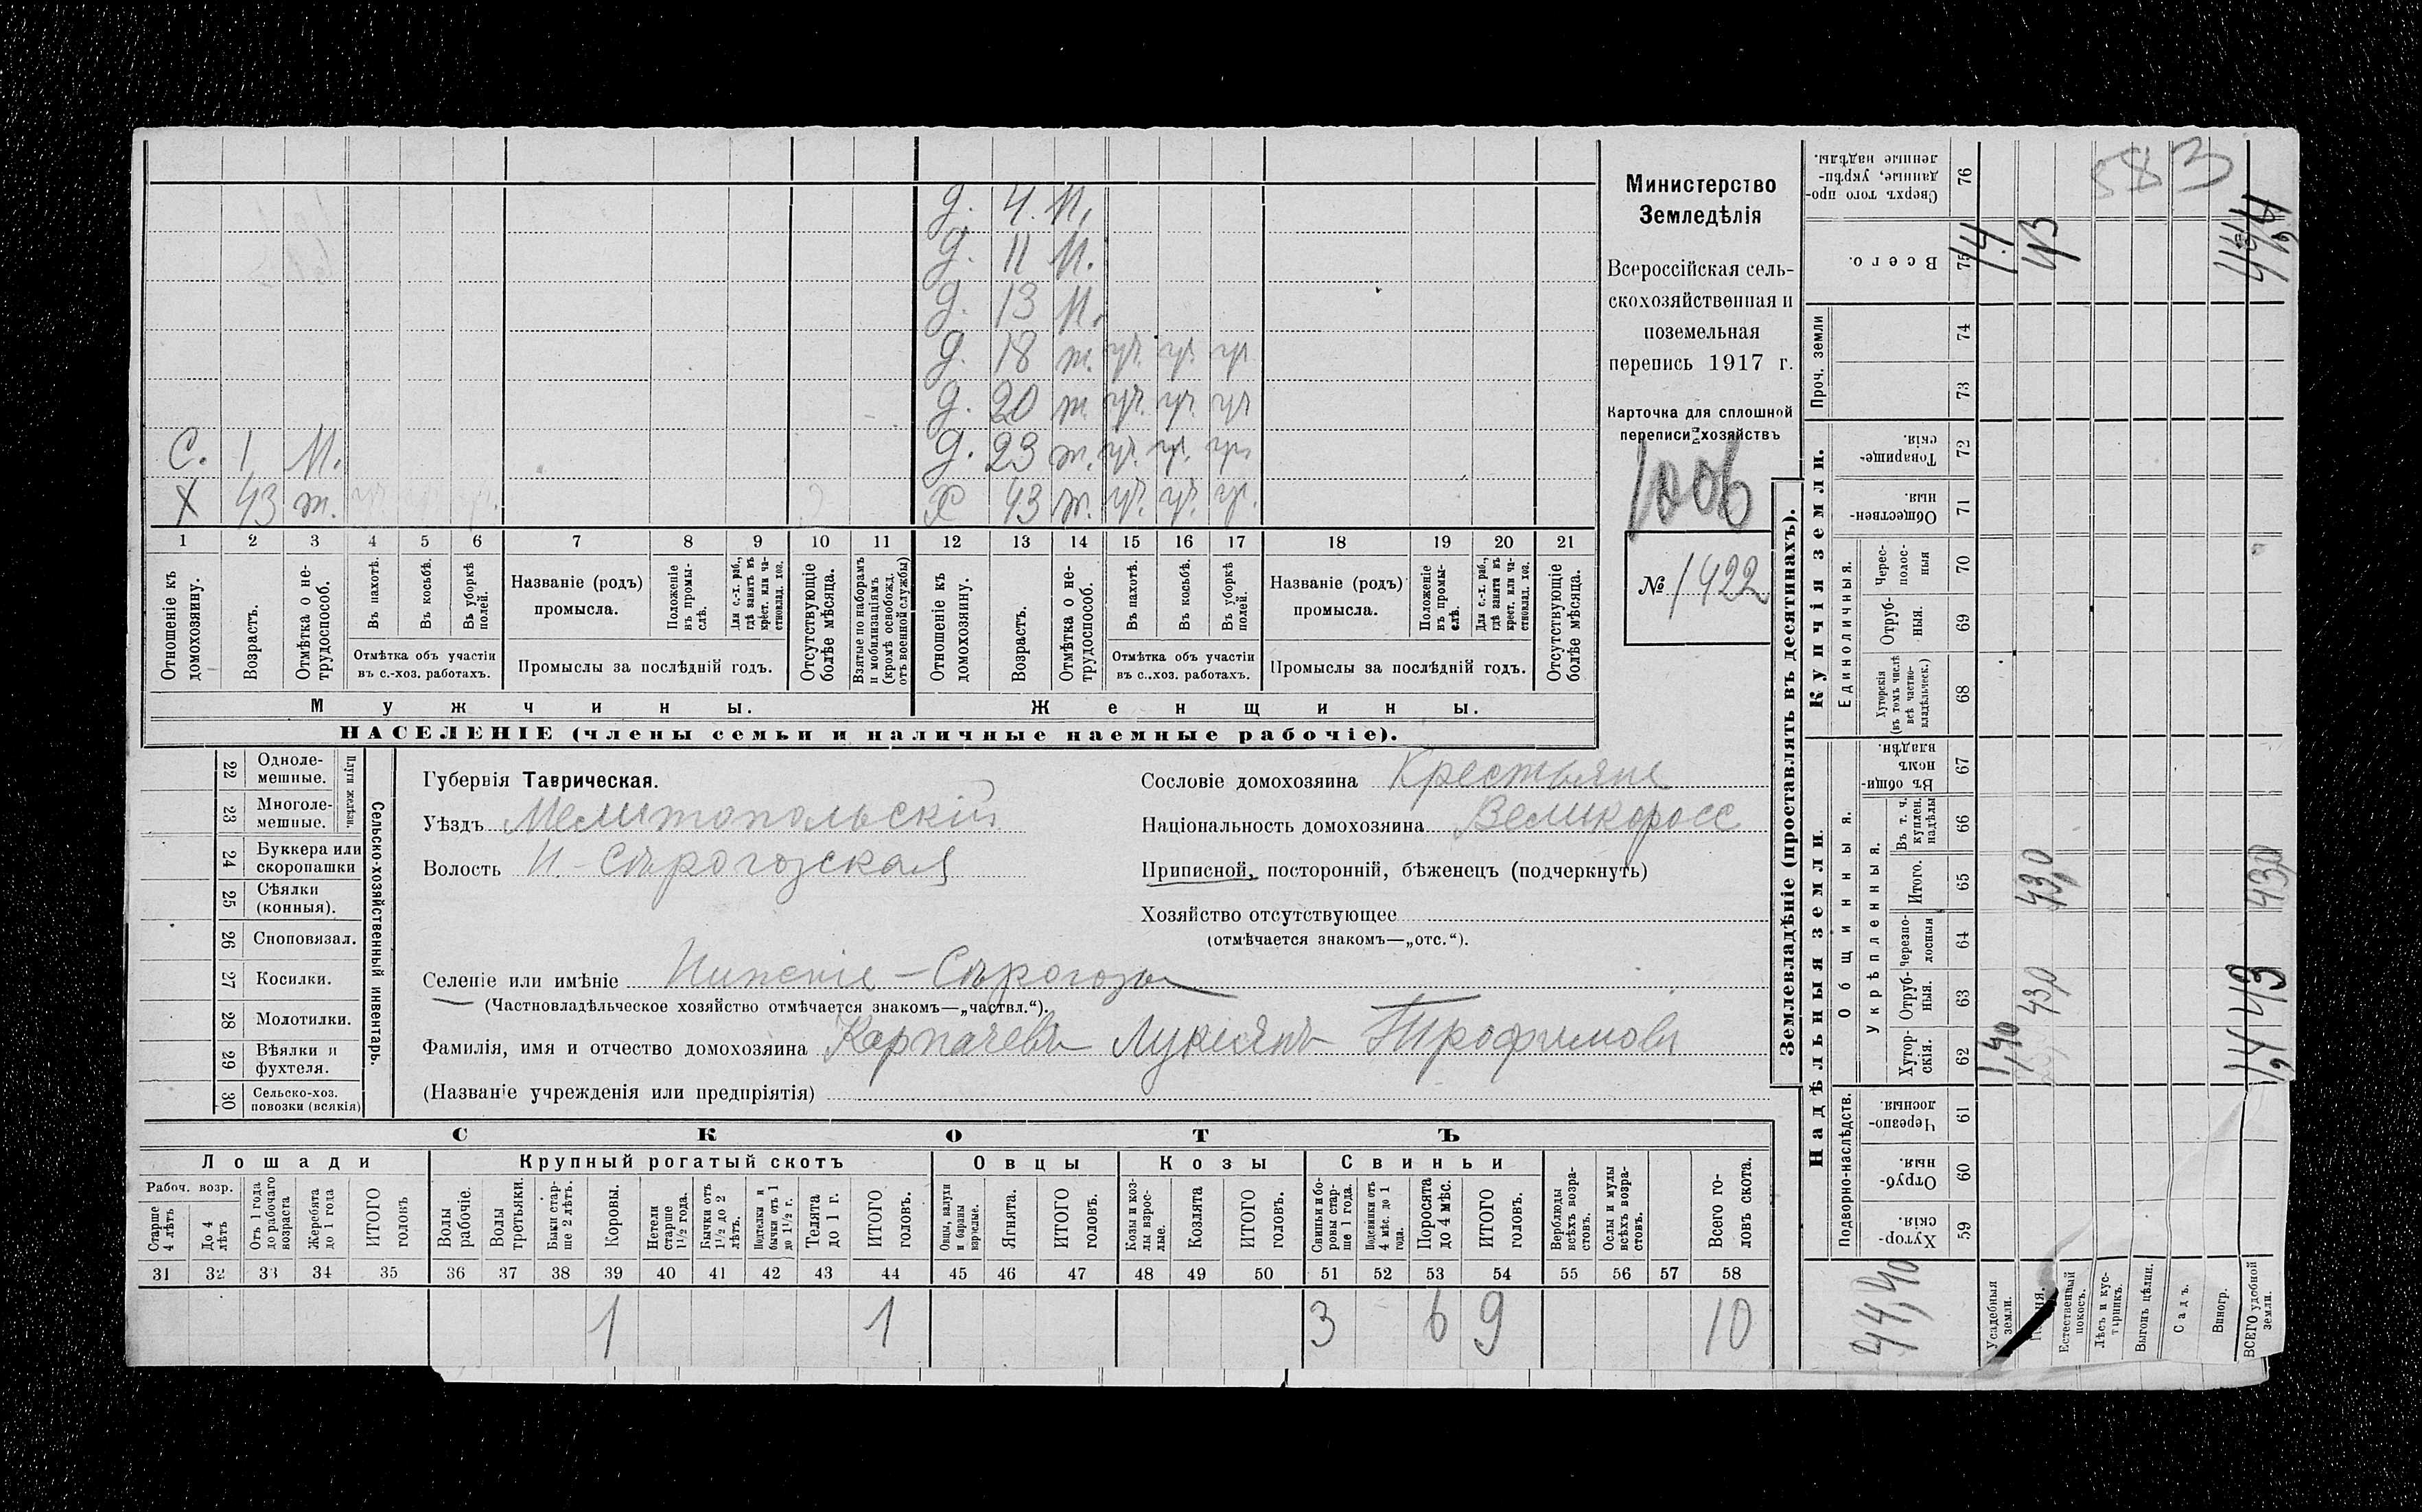 д. 4. н.
д. 11 н.
д. 13 н.
д. 18 ж. уч. уч. уч.
д. 20 ж. уч. уч. уч.
С. 1 н. д. 23 ж. уч. уч. уч.
Х 43 ж. Х 43 ж. уч. уч. уч.
1 2 3 4 5 6 7 8 9 10 11 12 13 14 15 16 17 18 19 20 21
Отношеніе къ домохозяину.
Возрастъ.
Отмѣтка о нетрудоспособ.
Въ пахотѣ.
Въ косьбѣ.
Въ уборкѣ полей.
Отмѣтка объ участіи
въ с.-хоз. работахъ.
Названіе (родъ)
промысла.
Положеніе въ промыслѣ.
Для с.-х. раб., гдѣ занятъ въ крест. или частновлад. хоз.
Промыслы за послѣдній годъ.
Отсутствующіе болѣе мѣсяца.
Взятые по наборамъ и мобилизаціямъ (кромѣ освобожд. отъ военной службы)
Отношеніе къ домохозяину.
Возрастъ.
Отмѣтка о нетрудоспособ.
Въ пахотѣ.
Въ косьбѣ.
Въ уборкѣ полей.
Отмѣтка объ участіи
въ с..хоз. работахъ.
Названіе (родъ)
промысла.
Положеніе въ промыслѣ.
Для с.-х. раб., гдѣ занята въ крест. или частновлад. хоз.
Промыслы за послѣдній годъ.
Отсутствующіе болѣе мѣсяца.
Мужчины. Женщины.
НАСЕЛЕНІЕ (члены семьи и наличные наемные рабочіе).
Министерство
Земледѣлія
Всероссійская сель-
скохозяйственная и
поземельная
перепись 1917 г.
Карточка для сплошной
переписи хозяйствъ
1006
№ 1422
22 Однолемешные.
23 Многолемешные.
Плуги желѣзн.
24 Буккера или скоропашки
25 Сѣялки (конныя).
26 Сноповязал.
27 Косилки.
28 Молотилки.
29 Вѣялки и фухтеля.
30 Сельско-хоз. повозки (всякія)
Сельско-хозяйственный инвентарь.
Губернія Таврическая.
Уѣздъ Мелитопольскій
Волость Н.-Сѣрогозская
Сословіе домохозяина Крестьяне
Національность домохозяина Великоросс
Приписной, посторонній, бѣженецъ (подчеркнуть)
Хозяйство отсутствующее
(отмѣчается знакомъ—„отс.“).
Селеніе или имѣніе Нижніе-Сѣрогозы
(Частновладѣльческое хозяйство отмѣчается знакомъ—„частвл.“).
Фамилія, имя и отчество домохозяина Карпачевъ Лукіянъ Трофимовъ
(Названіе учрежденія или предпріятія)
СКОТЪ
Лошади Крупный рогатый скотъ Овцы Козы Свиньи
Рабоч. возр.
Старше 4 лѣтъ
До 4 лѣтъ
Отъ 1 года до рабочаго возраста
Жеребята до 1 года
ИТОГО головъ
Волы рабочіе.
Волы третьяки.
Быки старше 2 лѣтъ.
Коровы.
Нетели старше 1 1/2 года.
Бычки отъ 1 1/2 до 2 лѣтъ.
Подтелки и бычки отъ 1 до 1 1/2 г.
Телята до 1 г.
ИТОГО головъ.
Овцы, валухи и бараны взрослые.
Ягнята.
ИТОГО головъ.
Козы и козлы взрослые.
Козлята
ИТОГО головъ.
Свиньи и боровы старше 1 года.
Подсвинки отъ 4 мѣс. до 1 года.
Поросята до 4 мѣс.
ИТОГО головъ.
Верблюды всѣхъ возрастовъ.
Ослы и мулы всѣхъ возрастовъ.
Всего головъ скота.
31 32 33 34 35 36 37 38 39 40 41 42 43 44 45 46 47 48 49 50 51 52 53 54 55 56 57 58
1 1 3 6 9 10
Землевладѣніе (проставлять въ десятинахъ).
Купчія земли.
Надѣльныя земли.
Сверхъ того проданные, укрѣпленные надѣлы. 76
583
Всего. 75 1.4 43 44,4
Проч. земли 74 73
Товарищескія. 72
Общественныя. 71
Единоличныя.
Чересполосныя 70
Отрубныя. 69
Хуторскія (въ томъ числѣ всѣ частновладѣльческ.) 68
Въ общинномъ владѣн. 67
Общинныя.
Укрѣпленныя.
Въ т. ч. куплен. надѣлы 66
Итого. 65 43,0 43,0
Черезполосныя 64
Отрубныя. 63 43,0 43
Хуторскія. 62 1,40 1,4
Подворно-наслѣдств.
Черезполосныя. 61
Отрубныя. 60
Хуторскія. 59
44,40
Усадебныя земли.
Естественный покосъ.
Лѣсъ и кустарникъ.
Выгонъ цѣлин.
Садъ.
Виногр.
ВСЕГО удобной земли.